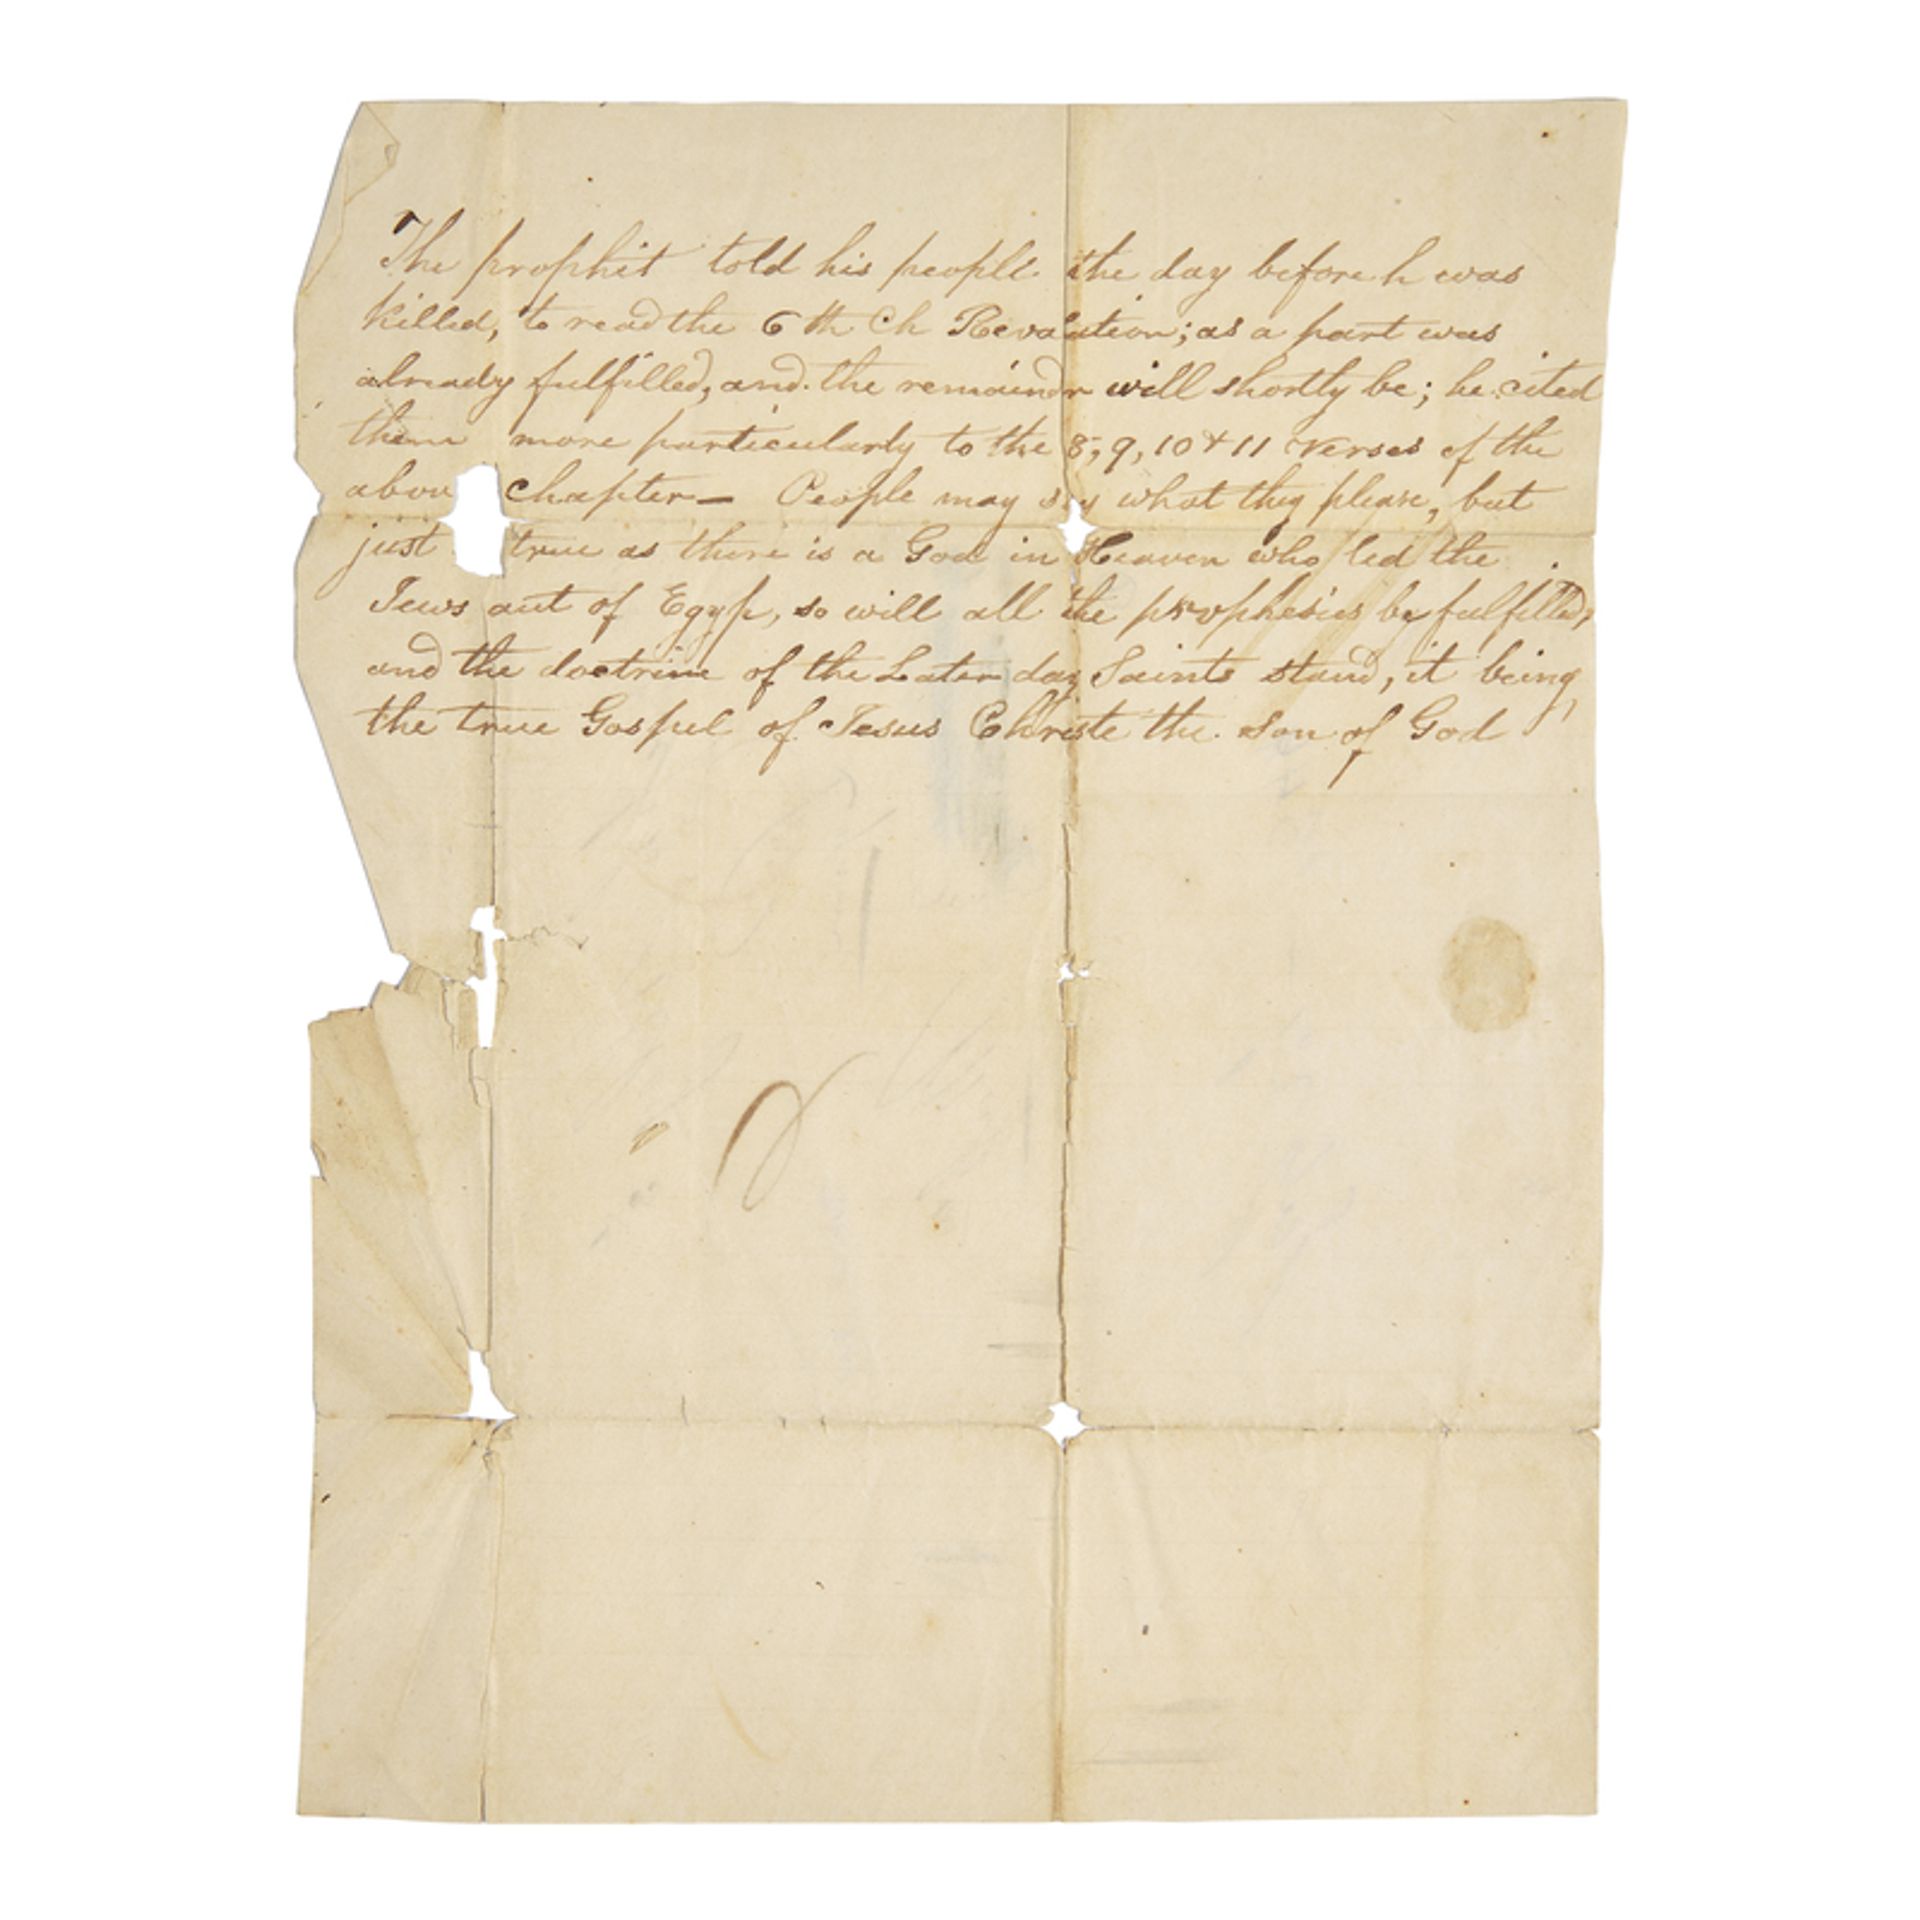 The prophit told his people the day before h was
killed, to read the 6th Ch Revalation; as a part was
already fulfilled, and the remaindr will shortly be; he cited
them more particularly to the 8, 9, 10 & 11 verses of the
abov chapter— People may say what they please, but
just true as there is a God in Heaven who led the
Jews out of Egyp, so will all the prophesies be fulfilled,
and the doctrine of the Later day Saints stand, it being,
the true Gospel of Jesus Christe the Son of God